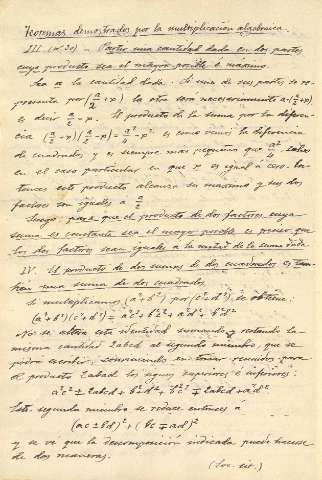 Teoremas demostrados por la multiplicación algebraica.
III (n. 30) – Partir una cantidad dada en dos partes
cuyo producto sea el mayor posible ó máximo.
Sea a la cantidad dada. Si una de sus partes se re-
presenta por (a/2 + p) la otra será necesariamente a-(a/2+p)
es decir a/2 - p. El producto de la suma por la diferen-
cia (a/2 + p)(a/2 - p) = a²/4 - p² es como vimos la diferencia
de cuadrados, y es siempre mas pequeña que a²/4, salvo
en el caso particular en que p es igual á cero. En-
tonces este producto alcanza su máximo y sus dos
factores son iguales á a/2
Luego, para que el producto de dos factores cuya
suma es constante sea el mayor posible es preciso que
los dos factores sean iguales a la mitad de la suma dada.
IV. El producto de dos sumas de dos cuadrados es tam-
bién una suma de dos cuadrados.
Si multiplicamos (a²+b²) por (c²+d²), se obtiene:
(a²+b²)(c²+d²) = a²c²+b²c²+a²d²+b²d²
No se altera esta identidad sumando y restando la
misma cantidad 2abcd al segundo miembro, que se
podrá escribir, conviniendo en tomar reunidos para
el producto 2abcd los signos superiores é inferiores:
a²c² ± 2abcd + b²d² + b²c² ∓ 2abcd + a²d²
Este segundo miembro se reduce entonces a
(ac ± bd)² + (bc ∓ ad)²
y se vé que la descomposición indicada puede hacerse
de dos maneras.
(Loc. cit.)